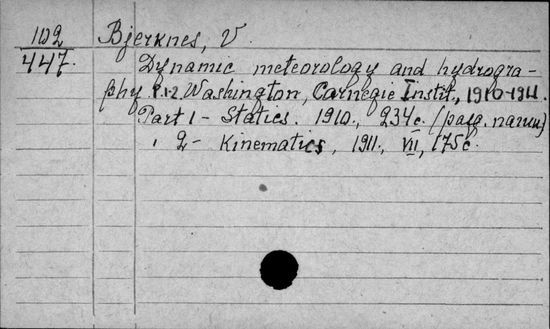 102
447.
Bjerknes, V.
Dynamic meteorology and hydrogra-
phy P. 1-2. Washington, Carnegie Instit., 1910-1911.
Part 1 - Statics. 1910., 234c. (разд. паги.)
" 2 - Kinematics, 1911., VII, 175c.